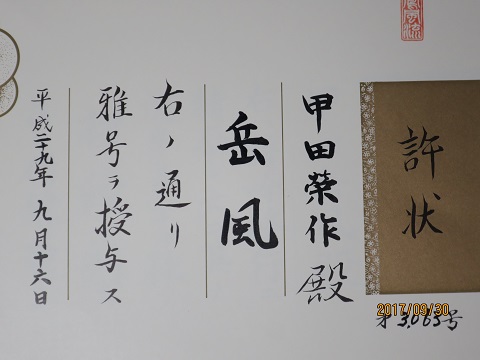 許状
第3,063号
甲田榮作殿
岳風
右ノ通リ
雅号ヲ授与ス
平成二十九年九月十六日
2017/09/30